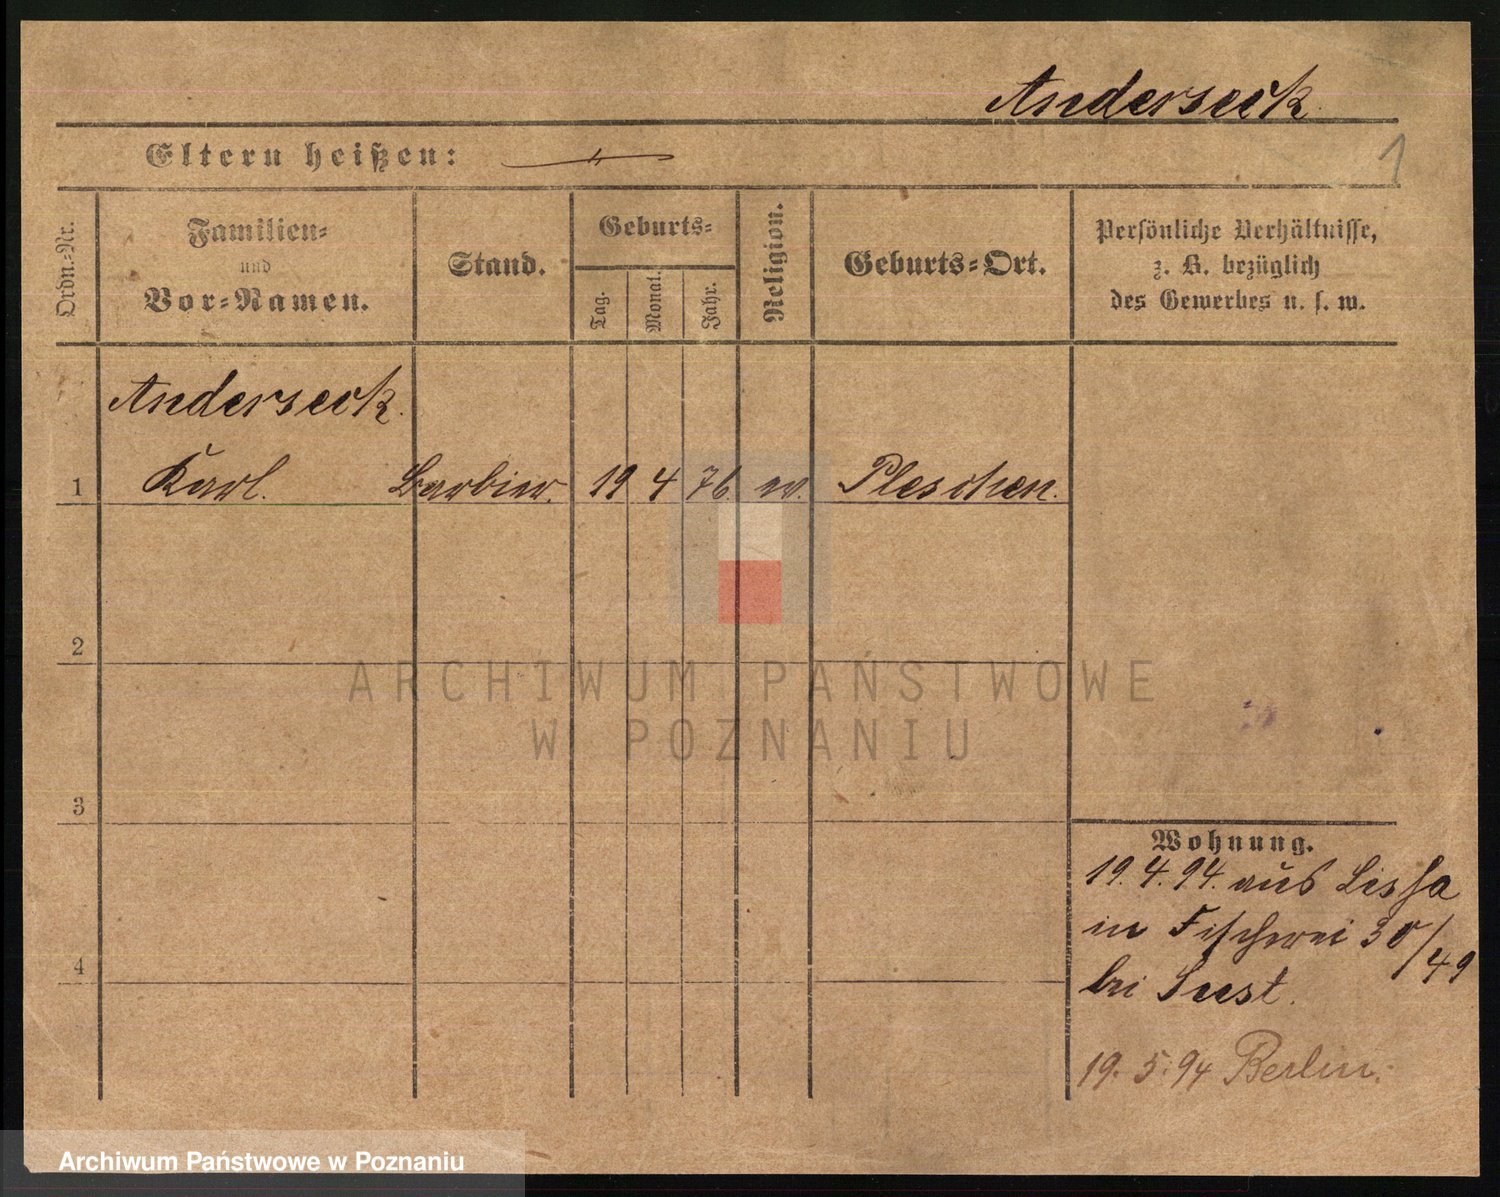 Anderseck.
Eltern heißen:
1
Ordn.-Nr.
Familien-
und
Vor-Namen.
Stand.
Geburts-
Tag.
Monat.
Jahr.
Religion.
Geburts-Ort.
Persönliche Verhältnisse,
z. B. bezüglich
des Gewerbes u. s. w.
Anderseck.
1 Karl. Barbier. 19 4 76 ev. Pleschen.
2
3
4
Wohnung.
19.4.94. aus Lissa
in Fischerei 30/49
bei Seest.
19.5.94 Berlin.
ARCHIWUM PAŃSTWOWE
W POZNANIU
Archiwum Państwowe w Poznaniu